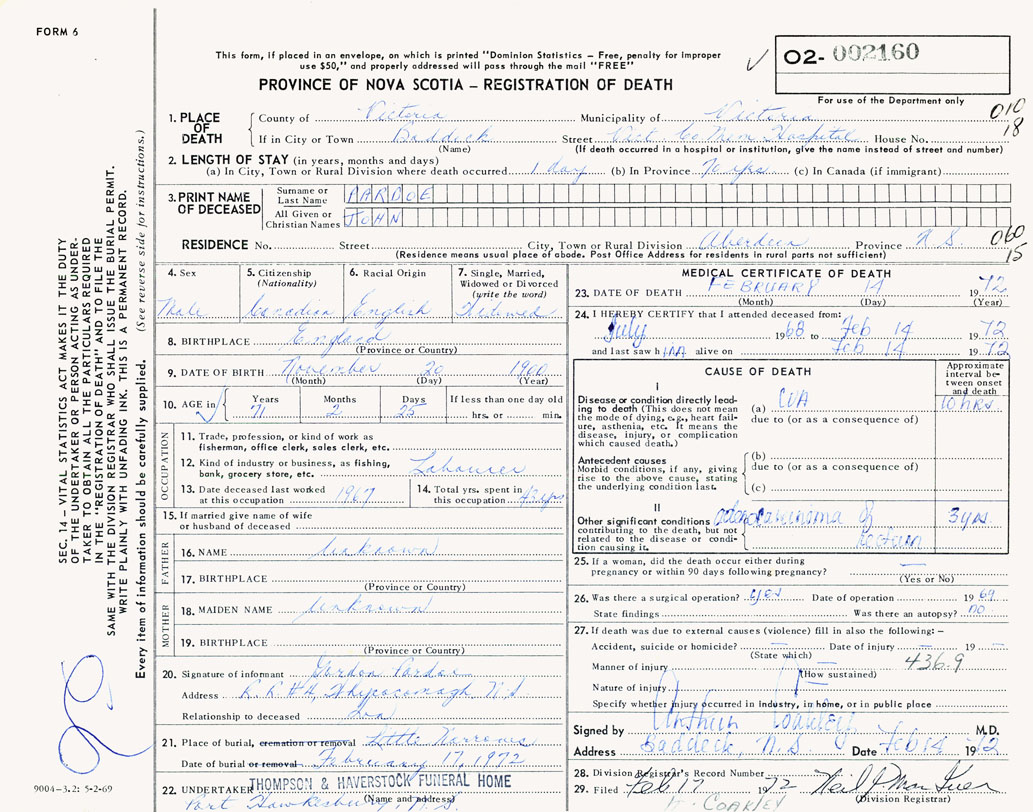 FORM 6
This form, if placed in an envelope, on which is printed "Dominion Statistics – Free, penalty for improper
use $50," and properly addressed will pass through the mail "FREE"
PROVINCE OF NOVA SCOTIA – REGISTRATION OF DEATH
O2- 002160
For use of the Department only
010
18
1. PLACE OF DEATH
County of Victoria Municipality of Victoria
If in City or Town Baddeck Street Vict. Co Mem Hospital House No.
(Name) (If death occurred in a hospital or institution, give the name instead of street and number)
2. LENGTH OF STAY (in years, months and days)
(a) In City, Town or Rural Division where death occurred 1 day (b) In Province 70 yrs (c) In Canada (if immigrant)
3. PRINT NAME OF DECEASED
Surname or Last Name PARDOE
All Given or Christian Names JOHN
RESIDENCE No. Street City, Town or Rural Division Aberdeen Province N.S.
060
15
(Residence means usual place of abode. Post Office Address for residents in rural parts not sufficient)
4. Sex
Male
5. Citizenship
(Nationality)
Canadian
6. Racial Origin
English
7. Single, Married,
Widowed or Divorced
(write the word)
Widowed
8. BIRTHPLACE England
(Province or Country)
9. DATE OF BIRTH November 20 1900
(Month) (Day) (Year)
10. AGE in
Years Months Days If less than one day old
71 2 25 hrs. or min.
OCCUPATION
11. Trade, profession, or kind of work as
fisherman, office clerk, sales clerk, etc.
12. Kind of industry or business, as fishing,
bank, grocery store, etc. Labourer
13. Date deceased last worked
at this occupation 1967
14. Total yrs. spent in
this occupation 43 yrs
15. If married give name of wife
or husband of deceased
FATHER
16. NAME Unknown
17. BIRTHPLACE
(Province or Country)
MOTHER
18. MAIDEN NAME Unknown
19. BIRTHPLACE
(Province or Country)
20. Signature of informant Gordon Pardoe
Address R.R.#4, Whycocomagh N.S
Relationship to deceased Son
21. Place of burial, cremation or removal Little Narrows
Date of burial or removal February 17, 1972
22. UNDERTAKER THOMPSON & HAVERSTOCK FUNERAL HOME
(Name and address)
Port Hawkesbury, N.S.
MEDICAL CERTIFICATE OF DEATH
23. DATE OF DEATH FEBRUARY 14 1972
(Month) (Day) (Year)
24. I HEREBY CERTIFY that I attended deceased from:
July 1968 to Feb 14 1972
and last saw him alive on Feb 14 1972
CAUSE OF DEATH
Approximate
interval be-
tween onset
and death
I
Disease or condition directly lead-
ing to death (This does not mean
the mode of dying, e.g., heart fail-
ure, asthenia, etc. It means the
disease, injury, or complication
which caused death.)
(a) CVA 10 hrs
due to (or as a consequence of)
Antecedent causes
Morbid conditions, if any, giving
rise to the above cause, stating
the underlying condition last.
(b)
due to (or as a consequence of)
(c)
II
Other significant conditions
contributing to the death, but not
related to the disease or condi-
tion causing it.
adenocarcinoma of 3 yrs
rectum
25. If a woman, did the death occur either during
pregnancy or within 90 days following pregnancy? —
(Yes or No)
26. Was there a surgical operation? yes Date of operation 1969
State findings Was there an autopsy? no
27. If death was due to external causes (violence) fill in also the following: –
Accident, suicide or homicide? — Date of injury — 19 —
(State which)
Manner of injury — 436.9
(How sustained)
Nature of injury
Specify whether injury occurred in industry, in home, or in public place
Signed by Arthur M.D.
Address Baddeck, N.S. Date Feb 14 1972
28. Division Registrar's Record Number
29. Filed Feb 17 1972 Neil J Mac
(Division Registrar)
COAKLEY
SEC. 14 – VITAL STATISTICS ACT MAKES IT THE DUTY
OF THE UNDERTAKER OR PERSON ACTING AS UNDER-
TAKER TO OBTAIN ALL THE PARTICULARS REQUIRED
IN THE "REGISTRATION OF DEATH" AND TO FILE THE
SAME WITH THE DIVISION REGISTRAR WHO SHALL ISSUE THE BURIAL PERMIT.
WRITE PLAINLY WITH UNFADING INK. THIS IS A PERMANENT RECORD.
Every item of information should be carefully supplied. (See reverse side for instructions.)
9004-3.2: 5-2-69